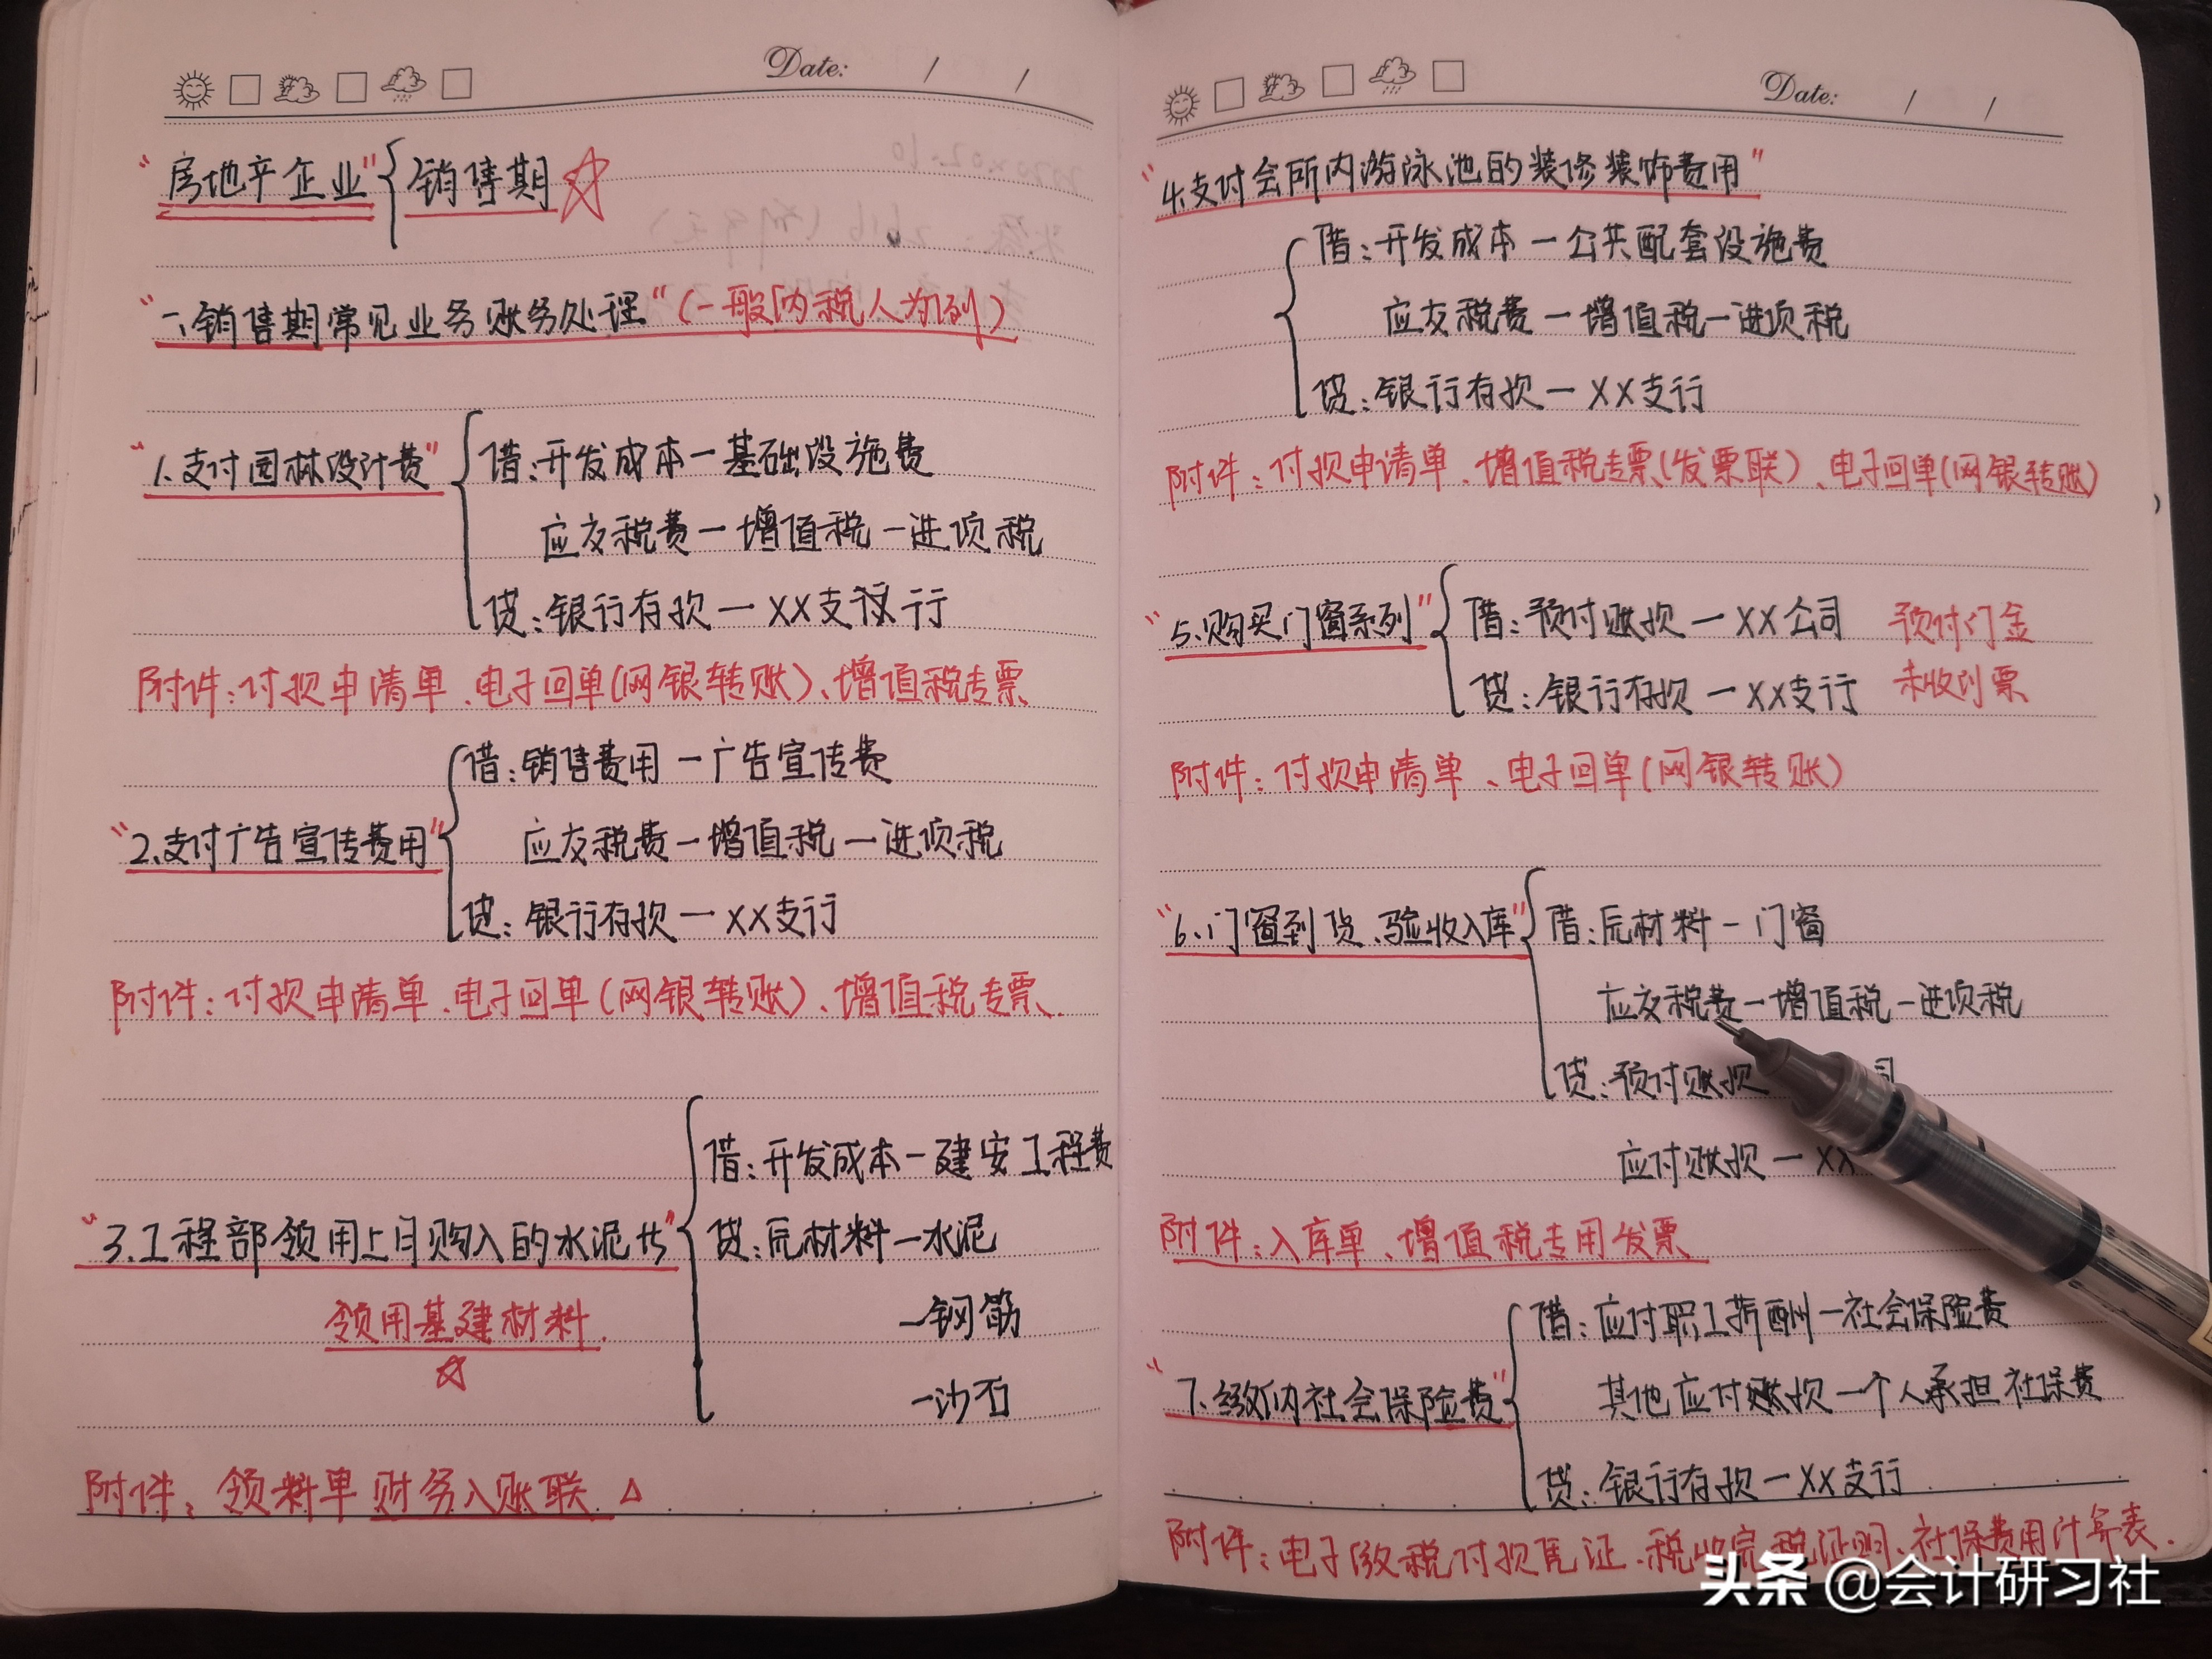 Date: / /
"房地产企业" 销售期
"一、销售期常见业务账务处理"(一般纳税人为例)
"1.支付园林设计费" 借:开发成本—基础设施费
应交税费—增值税—进项税
贷:银行存款—XX支行
附件:付款申请单、电子回单(网银转账)、增值税专票
借:销售费用—广告宣传费
"2.支付广告宣传费用" 应交税费—增值税—进项税
贷:银行存款—XX支行
附件:付款申请单、电子回单(网银转账)、增值税专票.
借:开发成本—建安工程费
"3.工程部领用上月购入的水泥等" 贷:原材料—水泥
领用基建材料. —钢筋
—沙石
附件:领料单财务入账联.
Date: / /
"4.支付会所内游泳池的装修装饰费用"
借:开发成本—公共配套设施费
应交税费—增值税—进项税
贷:银行存款—XX支行
附件:付款申请单、增值税专票(发票联)、电子回单(网银转账)
"5.购买门窗系列" 借:预付账款—XX公司 预付订金
贷:银行存款—XX支行 未收到票
附件:付款申请单、电子回单(网银转账)
"6.门窗到货、验收入库" 借:原材料—门窗
应交税费—增值税—进项税
贷:预付账款 司
应付账款—XX
附件:入库单、增值税专用发票
借:应付职工薪酬—社会保险费
"7.缴纳社会保险费" 其他应付账款—个人承担社保费
贷:银行存款—XX支行
附件:电子缴税付款凭证、税收完税证明、社保费用计算表.
头条 @会计研习社